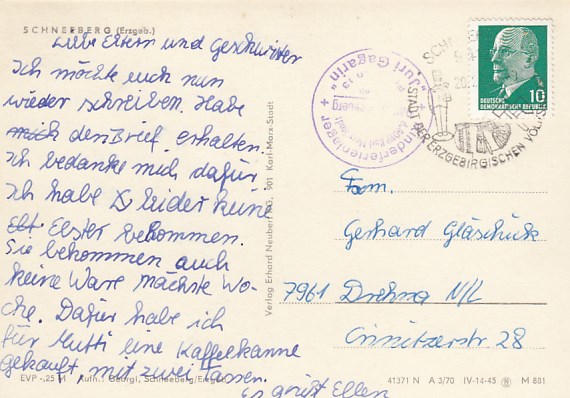 SCHNEEBERG (Erzgeb.)
Liebe Eltern und Geschwister
Ich möchte euch nun
wieder schreiben. Habe
mich den Brief erhalten.
Ich bedanke mich dafür.
Ich habe leider keine
Elster bekommen.
Sie bekommen auch
keine Ware nächste Wo-
che. Dafür habe ich
für Mutti eine Kaffeekanne
gekauft mit zwei Tassen.
Es grüßt Ellen
EVP -,25 M Aufn.: Georgi, Schneeberg/Erzgeb.
Verlag Erhard Neubert KG, 901 Karl-Marx-Stadt
Kinderferienlager
"Juri Gagarin"
STADT DER ERZGEBIRGISCHEN
10
DEUTSCHE
DEMOKRATISCHE REPUBLIK
Fam.
Gerhard Gläschück
7961 Drehna N/L
Crinitzerstr. 28
41371 N A 3/70 IV-14-45 M 881